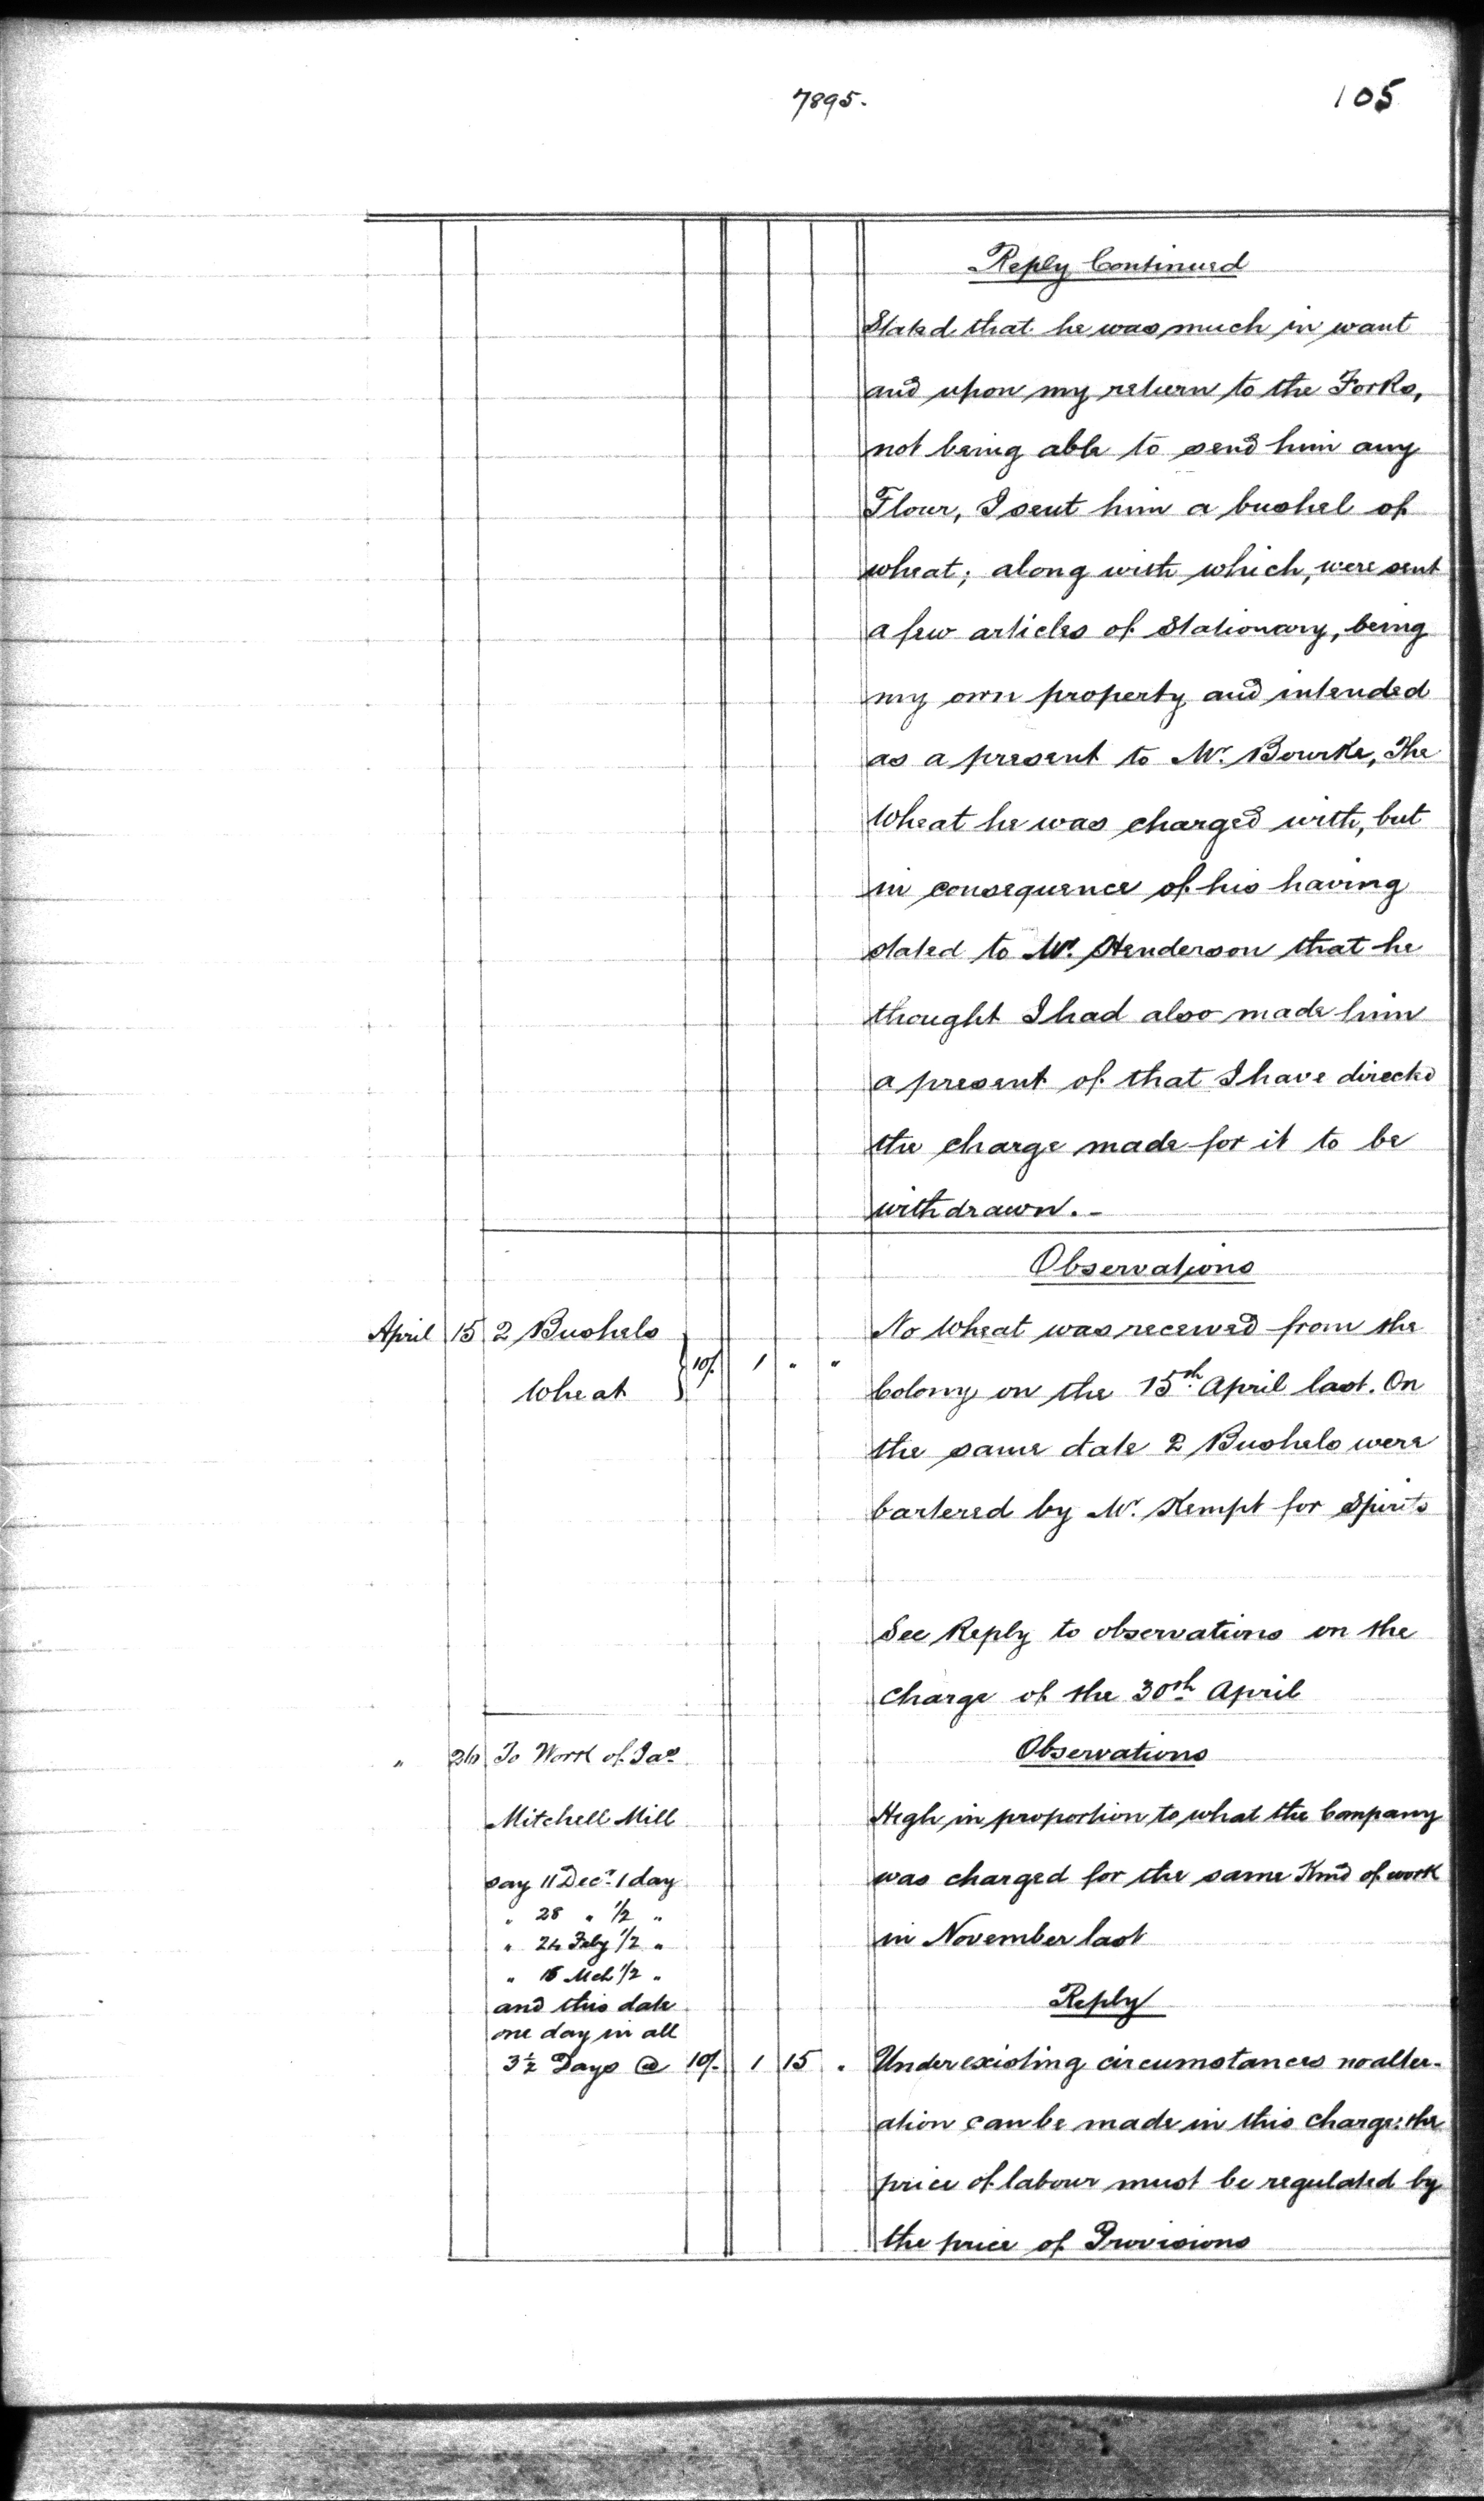 7895.
105
Reply Continued
Stated that he was much in want
and upon my return to the Forks,
not being able to send him any
Flour, I sent him a bushel of
wheat; along with which, were sent
a few articles of Stationary, being
my own property and intended
as a present to Mr. Bourke, The
Wheat he was charged with, but
in consequence of his having
stated to Mr. Henderson that he
thought I had also made him
a present of that I have directed
the charge made for it to be
withdrawn. -
Observations
April 15 2 Bushels
Wheat } 10/. 1 " "
No Wheat was received from the
Colony on the 15th. April last. On
the same date 2 Bushels were
bartered by Mr. Kempt for Spirits
See Reply to observations on the
Charge of the 30th April
" To Work of Jas
Mitchell Mill
say 11 Decr. 1 day
" 28 " 1/2 "
" 24 Feby 1/2 "
" 15 Mch 1/2 "
and this date
one day in all
3½ Days @ 10/. 1 15 "
Observations
High in proportion to what the Company
was charged for the same Kind of work
in November last
Reply
Under existing circumstances no alter-
ation can be made in this charge: the
price of labour must be regulated by
the price of Provisions